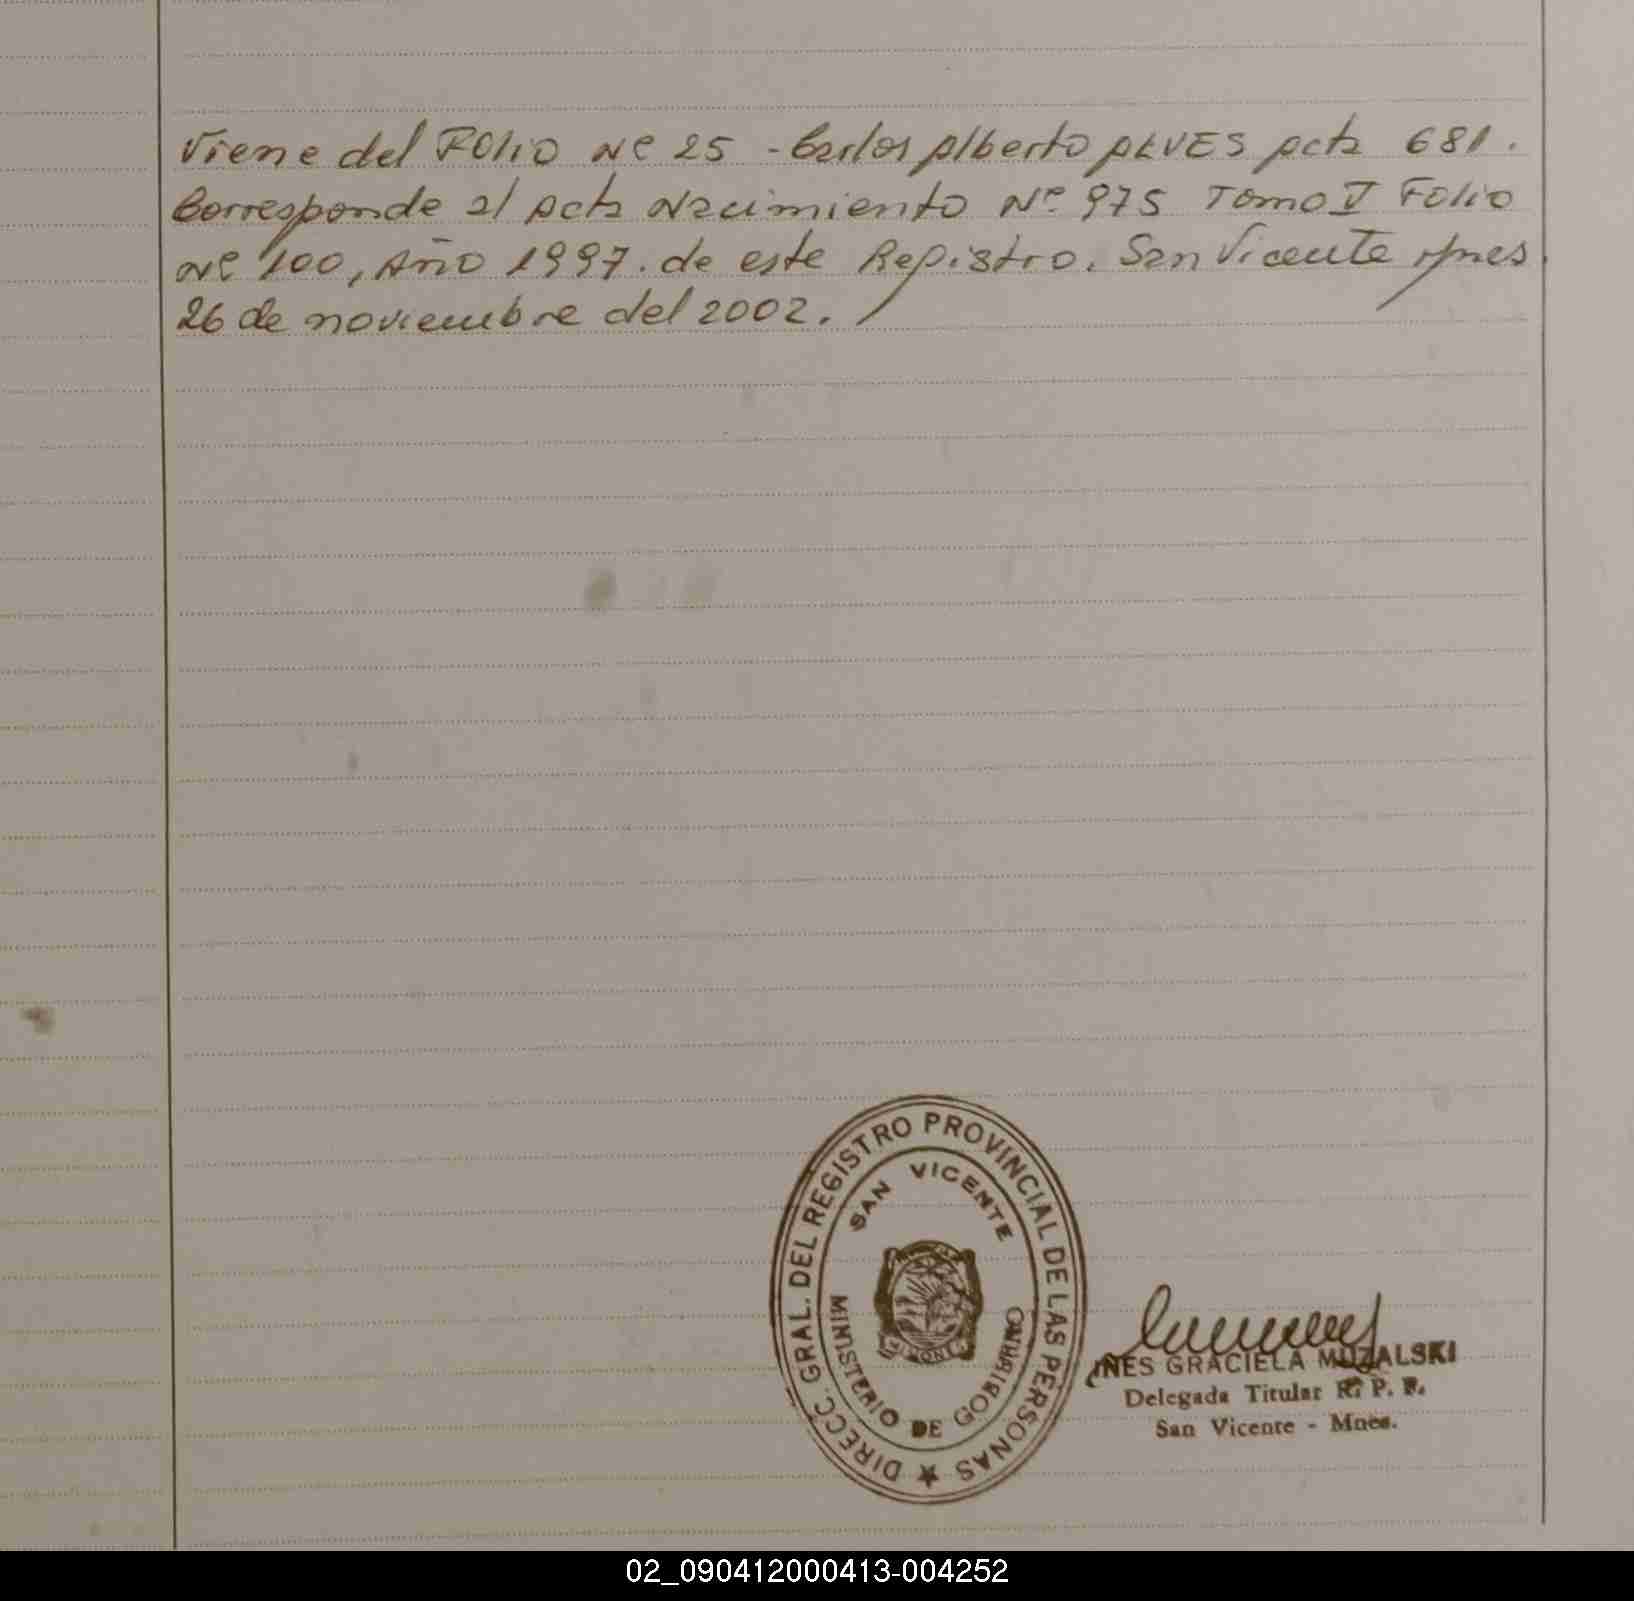 Viene del Folio Nº 25 - Carlos Alberto ALVES Acta 681.
Corresponde al Acta Nacimiento Nº 975 Tomo V Folio
Nº 100, Año 1997. de este Registro. San Vicente Mnes.
26 de noviembre del 2002.
DIRECC. GRAL. DEL REGISTRO PROVINCIAL DE LAS PERSONAS ★
SAN VICENTE
MINISTERIO DE GOBIERNO
INES GRACIELA MUZALSKI
Delegada Titular R. P. P.
San Vicente - Mnes.
02_090412000413-004252